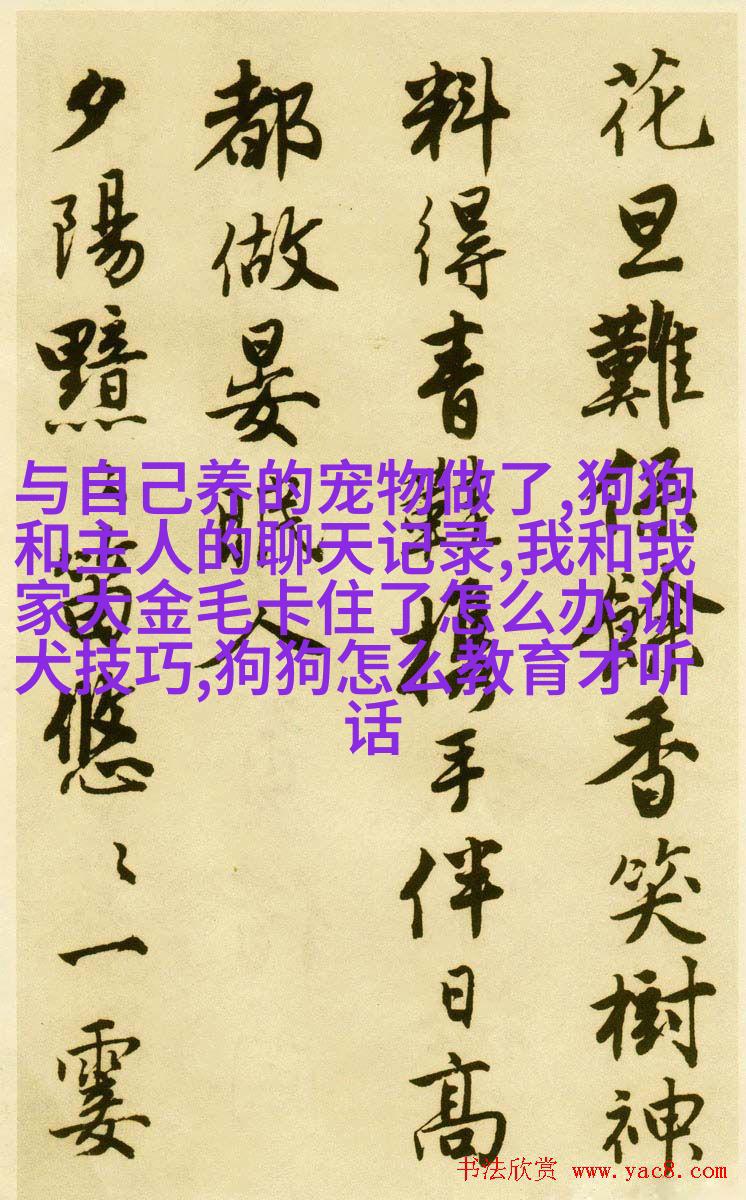 花旦難餘香笑樹神
料得青鞵攜手伴日高
都做晏眠人
夕陽黯〻笛悠〻一霎
与自己养的宠物做了,狗狗
和主人的聊天记录,我和我
家大金毛卡住了怎么办,训
犬技巧,狗狗怎么教育才听
话
书法欣赏 www.yac8.com